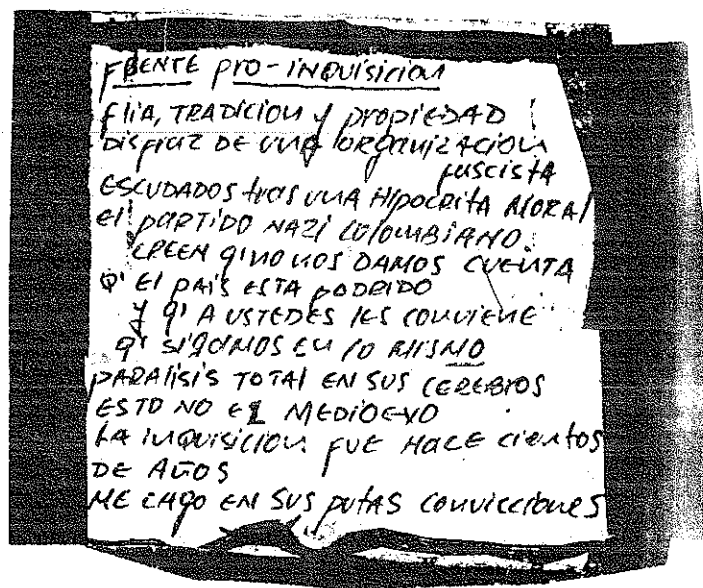 FRENTE PRO-INQUISICION
FLIA, TRADICION Y PROPIEDAD
DISFRAZ DE UNA ORGANIZACION
FASCISTA
ESCUDADOS tras UNA HIPOCRITA MORAL
El PARTIDO NAZI COLOMBIANO.
CREEN q' NO NOS DAMOS CUENTA
Q' El PAIS ESTA PODRIDO
Y q' A USTEDES les CONVIENE
q' SIGAMOS EN lO MISMO
PARALISIS TOTAL EN SUS CEREBROS
ESTO NO ES MEDIOEVO
LA INQUISICION FUE HACE cientos
DE AÑOS
ME CAGO EN SUS PUTAS CONVICCIONES